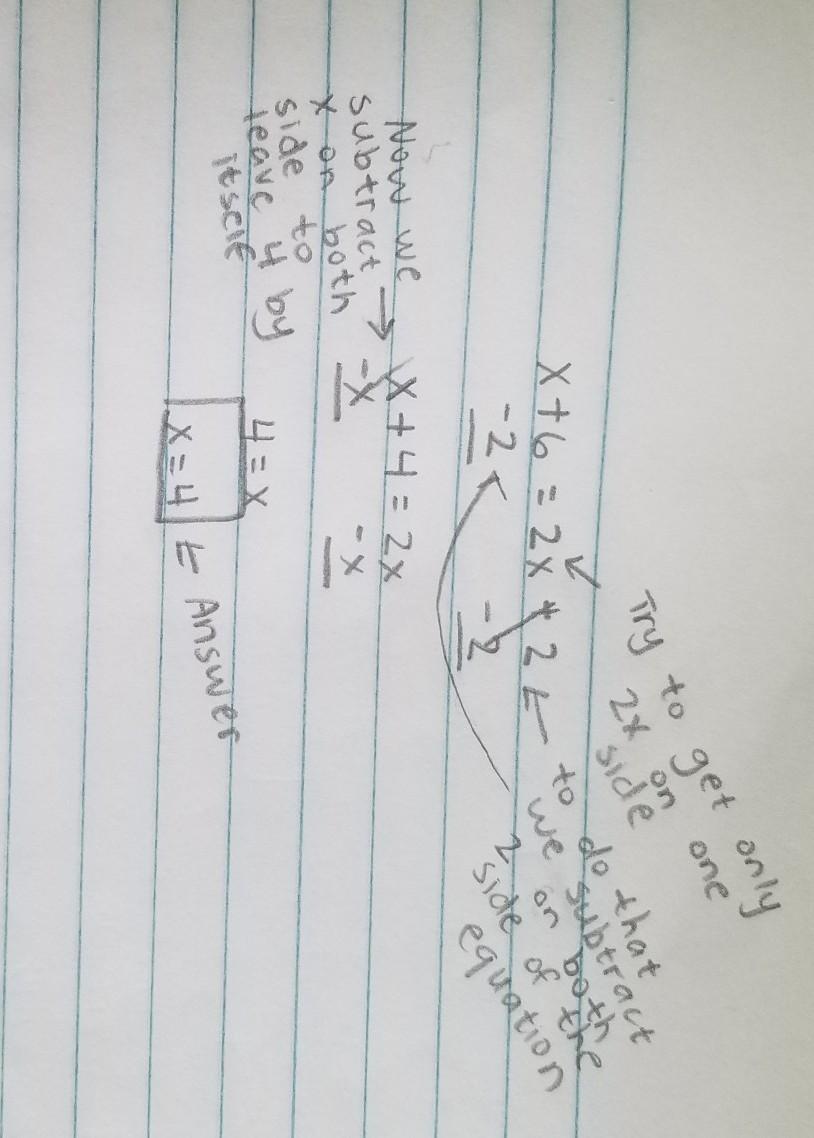 Try to get only
2x on one
side
x + 6 = 2x + 2 ←
to do that
we subtract
2 on both
side of the
equation
-2 -2
Now we
subtract →
x on both
side to
leave 4 by
itself
x + 4 = 2x
-x -x
4 = x
x = 4 ← Answer